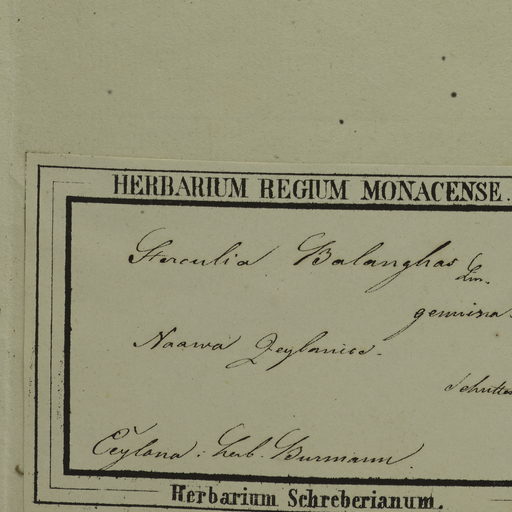 HERBARIUM REGIUM MONACENSE.
Sterculia Balanghas Lin.
genuina.
Naawa Zeylanica.
Ceylona: herb. Burmann.
Herbarium Schreberianum.